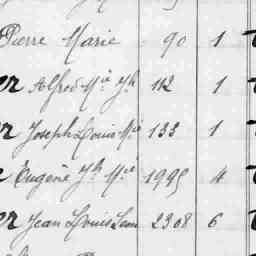 Pierre Marie 90 1
er Alfred Mie Jh 112 1
er Joseph Louis Mie 133 1
Eugène Jh Mie 1995 4
er Jean Louis Léon 2308 6